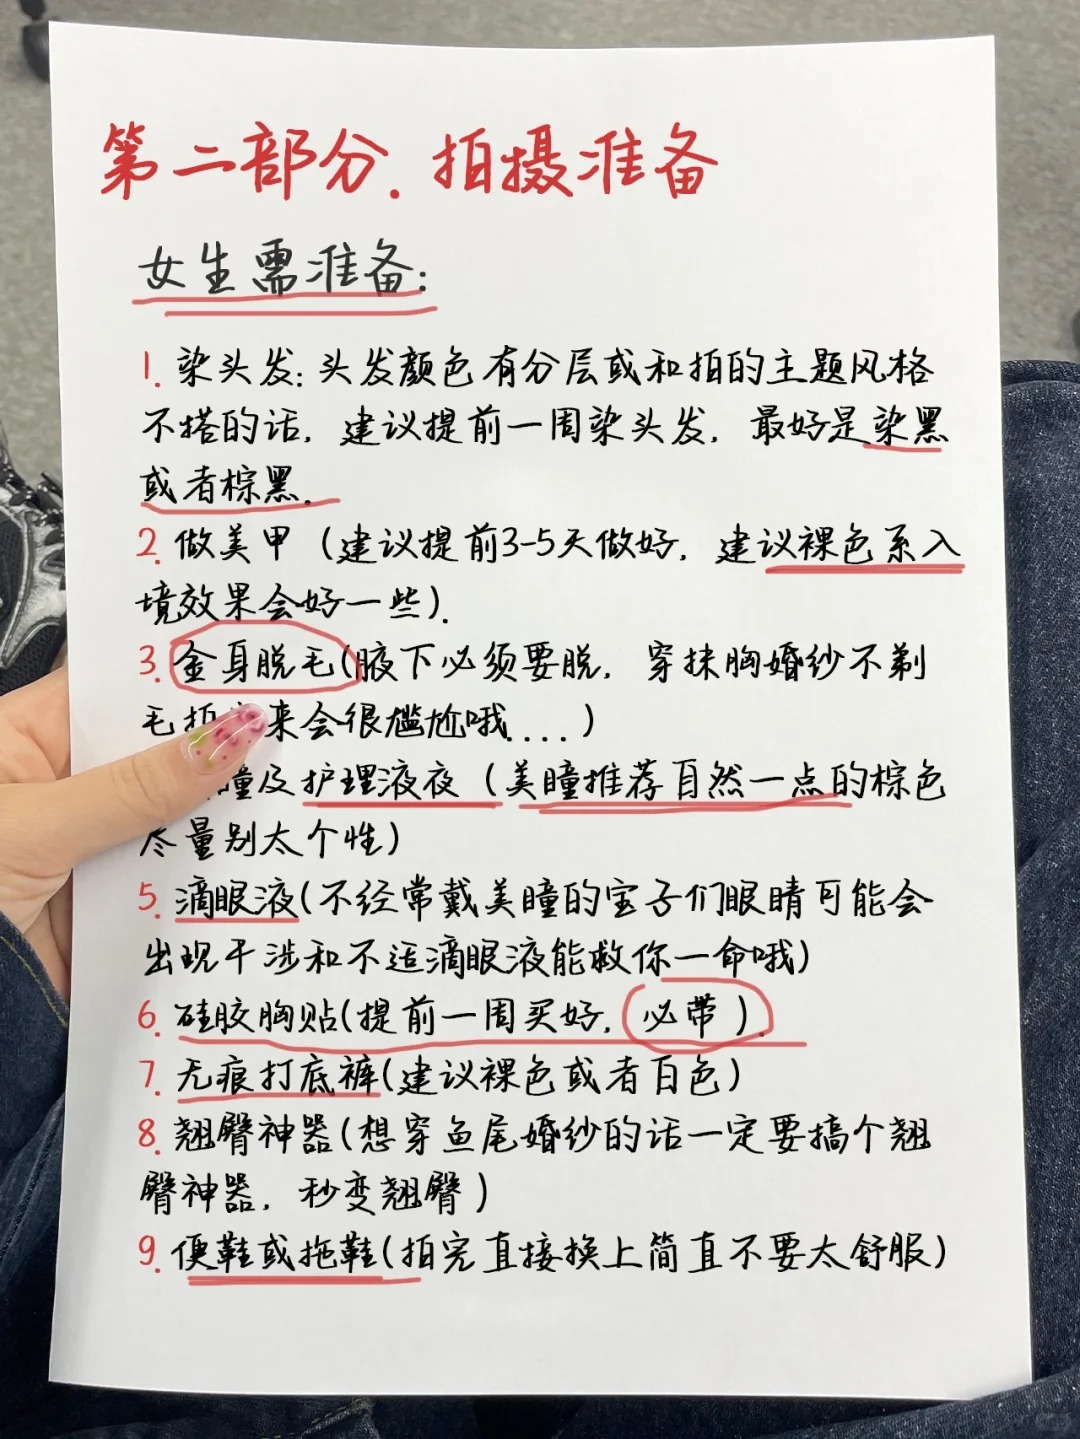 第二部分. 拍摄准备
女生需准备:
1. 染头发: 头发颜色有分层或和拍的主题风格
不搭的话, 建议提前一周染头发, 最好是染黑
或者棕黑.
2. 做美甲 (建议提前3-5天做好, 建议裸色系入
境效果会好一些).
3. 全身脱毛(腋下必须要脱, 穿抹胸婚纱不剃
毛拍 来会很尴尬哦....)
瞳及护理液夜 (美瞳推荐自然一点的棕色
尽量别太个性)
5. 滴眼液(不经常戴美瞳的宝子们眼睛可能会
出现干涉和不适滴眼液能救你一命哦)
6. 硅胶胸贴(提前一周买好, 必带).
7. 无痕打底裤(建议裸色或者白色)
8. 翘臀神器(想穿鱼尾婚纱的话一定要搞个翘
臀神器, 秒变翘臀)
9. 便鞋或拖鞋(拍完直接换上简直不要太舒服)